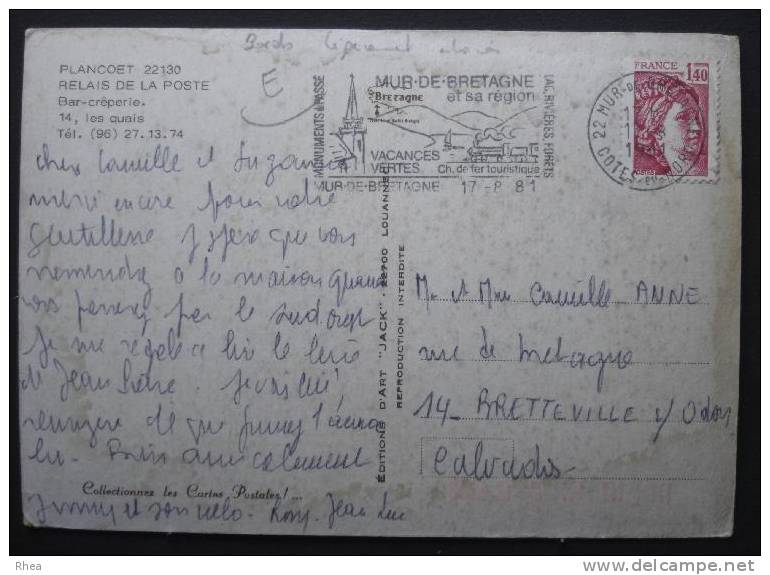 Bords légèrement
E
PLANCOET 22130
RELAIS DE LA POSTE
Bar-crêperie.
14, les quais
Tél. (96) 27.13.74
MONUMENTS DU PASSE
MUR-DE-BRETAGNE
et sa région
Bretagne
LAC, RIVIERES, FORETS
VACANCES
VERTES
Ch. de fer touristique
MUR-DE-BRETAGNE 17-8 81
22 MUR-DE-BRETAGNE
COTES-DU-NORD
FRANCE
1,40
Chers Camille et Suzanne
merci encore pour votre
gentillesse j'espère que vous
à la maison quand
vous passerez par le sud ouest
Je me régale à lire le livre
de Jean Pierre. Je vais lui
de que Jimmy l'aura
lu. Bien amicalement
Collectionnez les Cartes Postales !...
Jimmy et son vélo. Jean Luc
EDITIONS D'ART "JACK" - 22700 LOUANNEC
REPRODUCTION INTERDITE
Mr et Mme Camille ANNE
rue de Bretagne
14_ BRETTEVILLE s/ Odon
Calvados
Rhea
delcampe.net